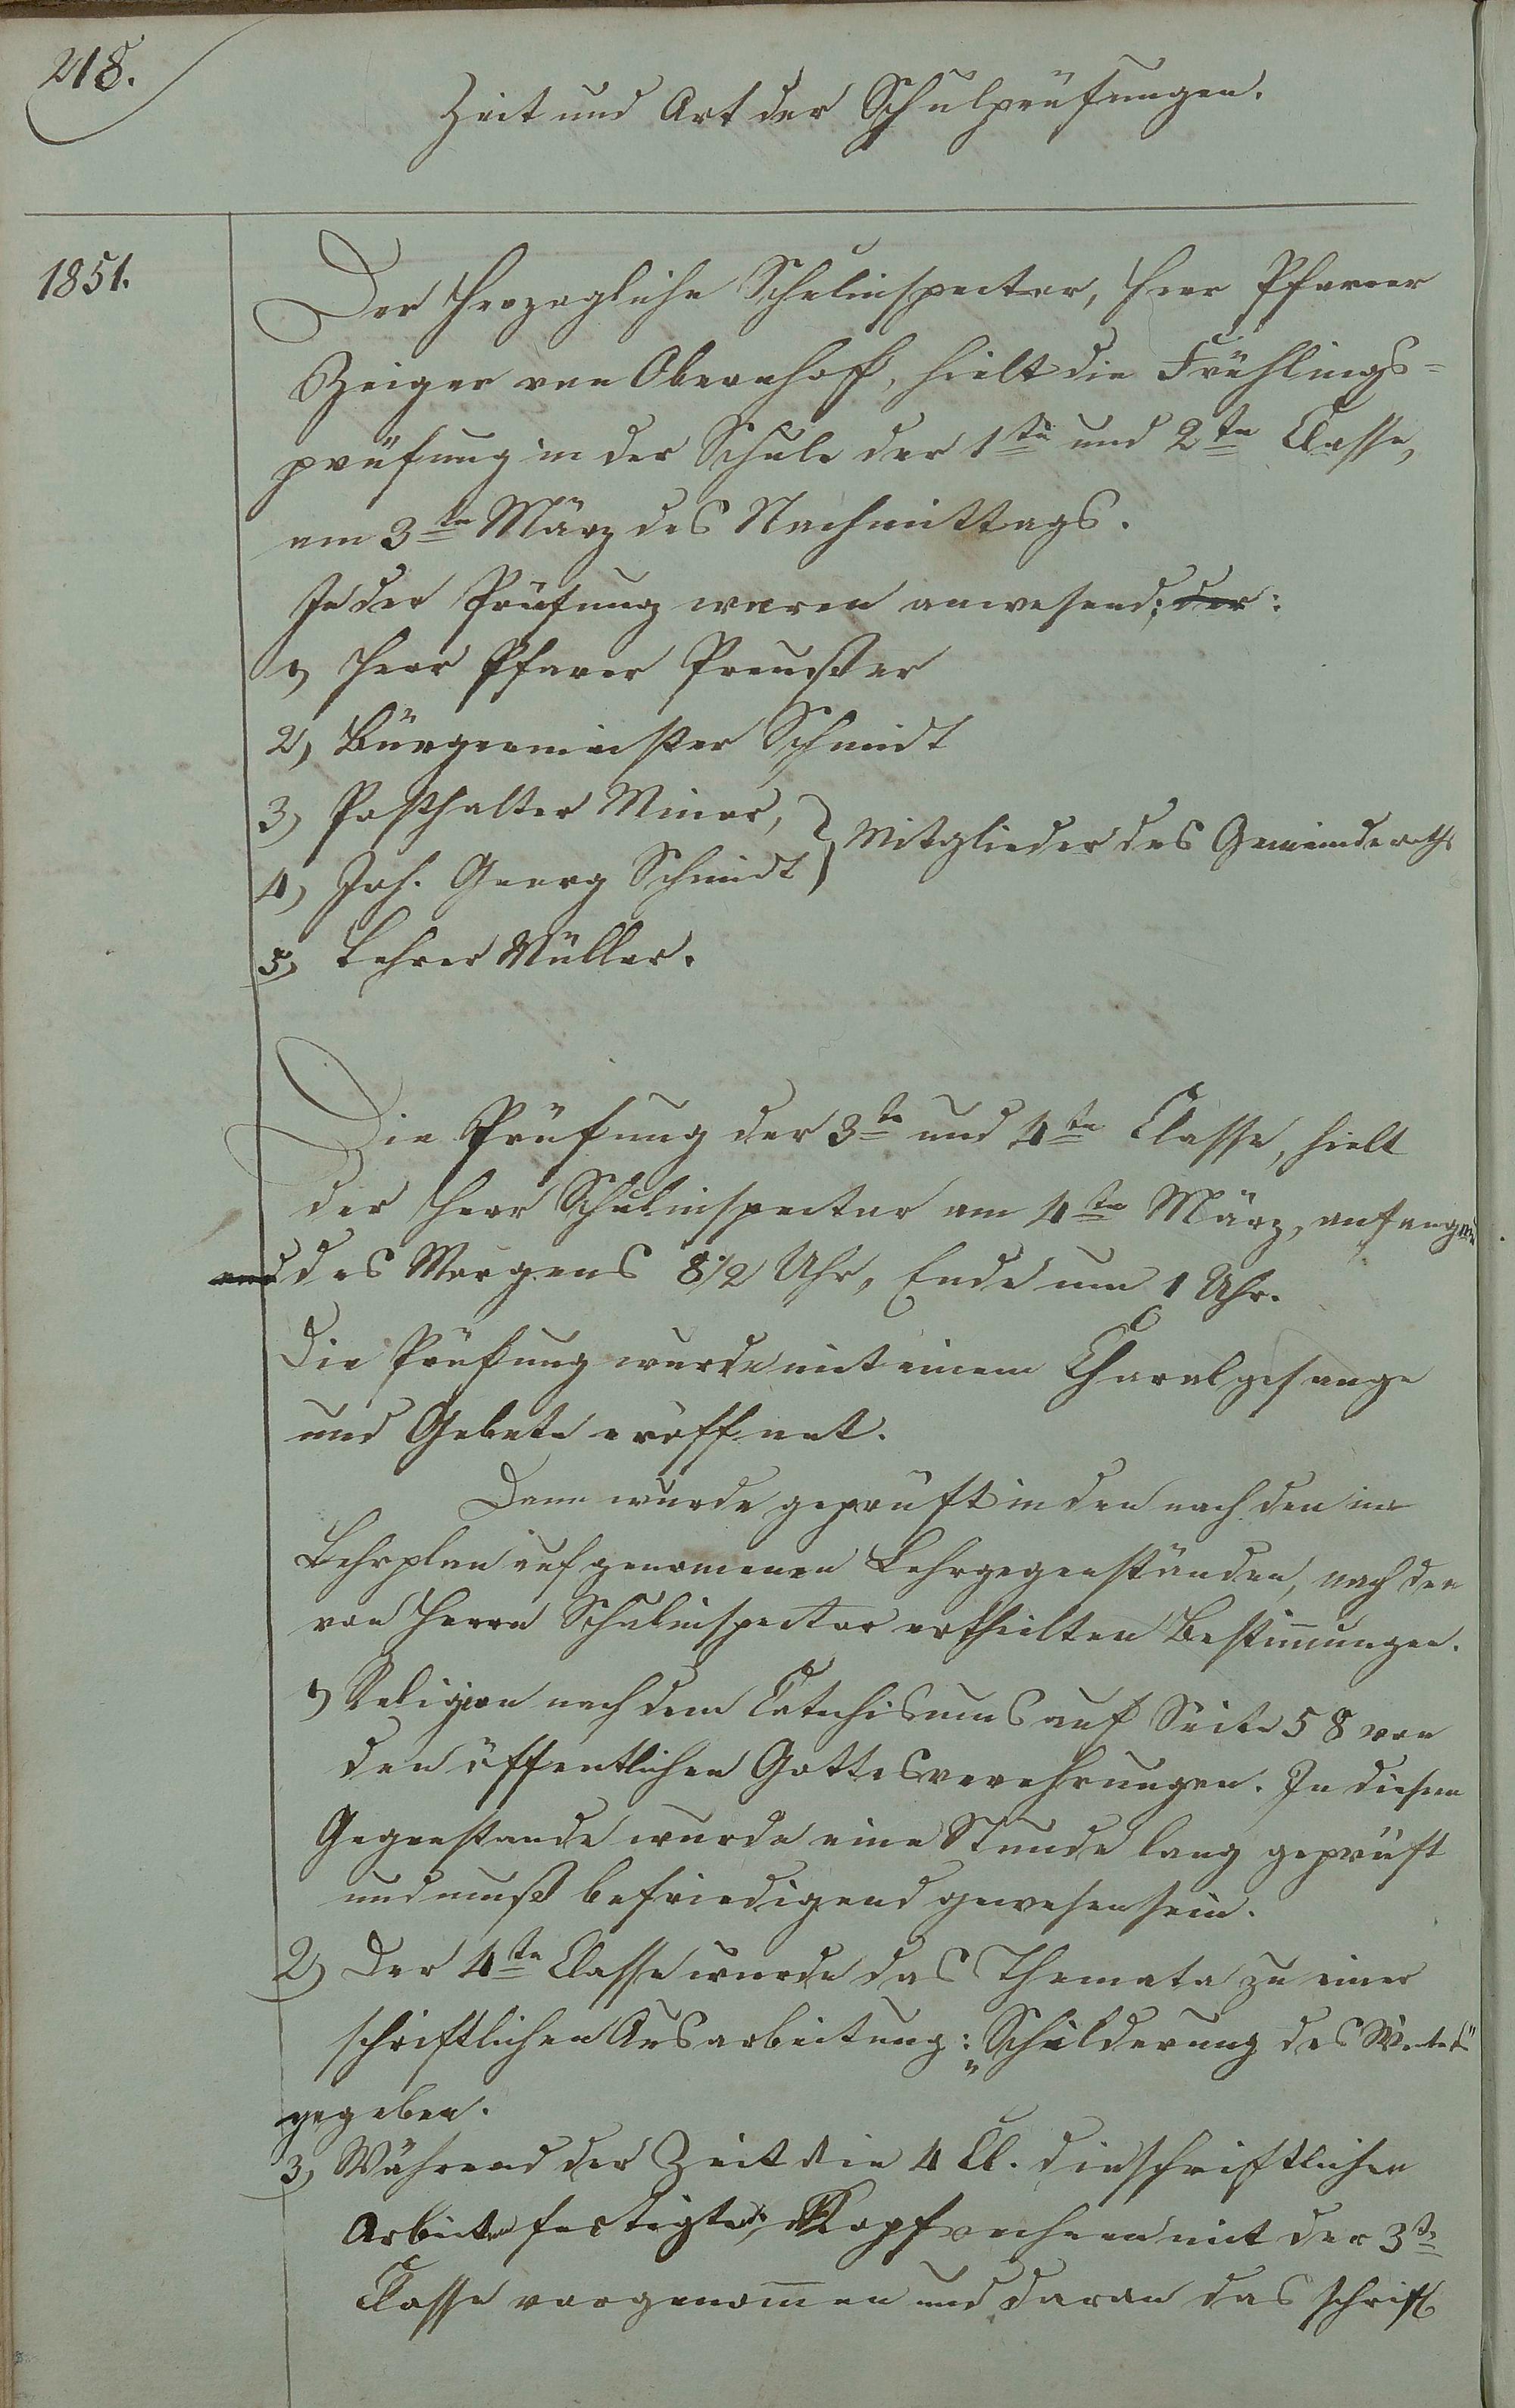 218.
Zeit und Art der Schulprüfungen.
1851.
Der Herzogliche Schulinspector, Herr Pfarrer
Zeiger von Obernhof, hielt die Frühlings-
prüfung in der Schule der 1te und 2te Classe,
am 3te März des Nachmittags.
In der Prüfung waren anwesend: der:
1) Herr Pfarer Preußer
2) Bürgermeister Schmidt
3) Posthalter Minor,
4) Joh. Georg Schmidt } Mitglieder des Gemeinderaths
5) Lehrer Müller.
Die Prüfung der 3te und 4te Classe, hielt
der Herr Schulinspector am 4te März, anfangend
des Morgens 8 1/2 Uhr, Ende um 1 Uhr.
Die Prüfung wurde mit einem Choralgesange
und Gebete eröffnet.
Dann wurde geprüft in den nach den im
Lehrplan aufgenomenen Lehrgegenständen, nach den
von Herrn Schulinspector ertheilten Bestimungen.
1) Religion nach dem Catechismus auf Seite 58 von
den öffentlichen Gottesverehrungen. In diesem
Gegenstande wurde eine Stunde lang geprüft
und muß befriedigend gewesen sein.
2) Der 4te Classe wurde das Themata zu einer
schriftlichen Ausarbeitung: „Schilderung des Winters"
gegeben.
3) Während der Zeit die 4 Cl. die schriftlichen
Arbeiten fertigte, Kopfrechnen mit der 3te
Classe vorgenomen und daran das schriftl